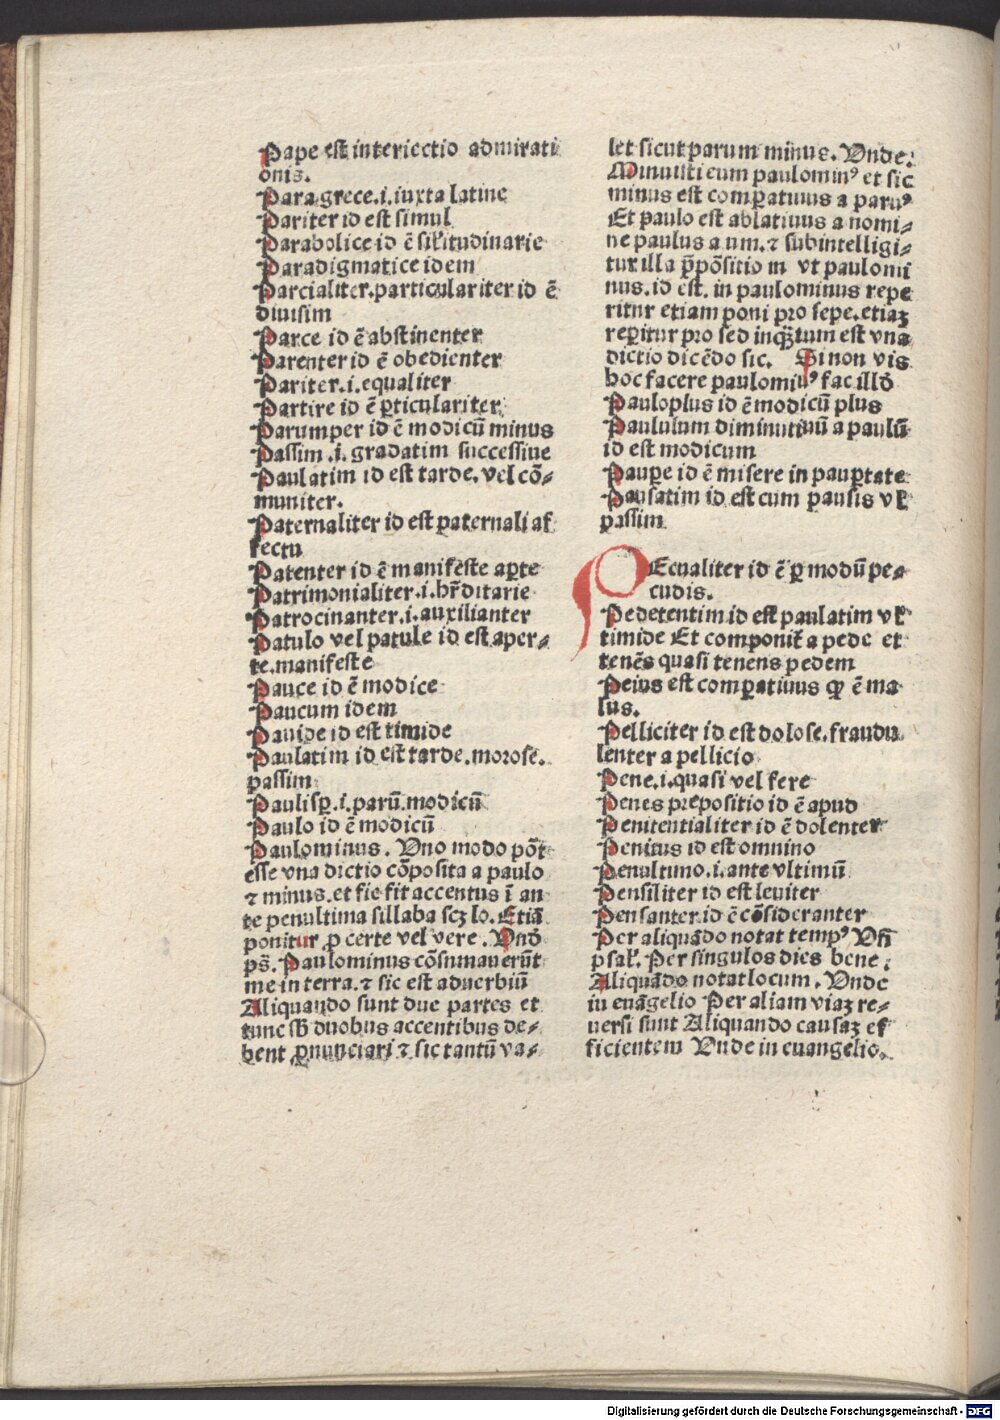 Pape est interiectio admirati
onis.
Para grece .i. iuxta latine
Pariter id est simul
Parabolice id ē silitudinarie
Paradigmatice idem
Parcialiter. particulariter id ē
diuisim
Parce id ē abstinenter
Parenter id ē obedienter
Pariter .i. equaliter
Partire id ē ꝑticulariter
Parumper id ē modicū minus
Passim .i. gradatim successiue
Paulatim id est tarde. vel cō⸗
muniter.
Paternaliter id est paternali af
fectu
Patenter id ē manifeste aꝑte
Patrimonialiter .i. hr̄ditarie
Patrocinanter .i. auxilianter
Patulo vel patule id est aper⸗
te. manifeste
Pauce id ē modice
Paucum idem
Pauide id est timide
Paulatim id est tarde. morose.
passim
Paulisꝑ .i. parū. modicū
Paulo id ē modicū
Paulominus. Vno modo pōt
esse vna dictio cōposita a paulo
⁊ minus. et sic fit accentus ī an
te penultima sillaba scꝫ lo. Etiā
ponitur ꝓ certe vel vere. Vnd̄
ps̄. Paulominus cōsumauerūt
me in terra. ⁊ sic est aduerbiū
Aliquando sunt due partes et
tunc sb̄ duobus accentibus de⸗
bent ꝓnunciari ⁊ sic tantū va⸗
let sicut parum minus. Vnde.
Minuisti eum paulominꝰ et sic
minus est comꝑatiuus a paruꝰ
Et paulo est ablatiuus a nomi⸗
ne paulus a um. ⁊ subintelligi⸗
tur illa p̄pōsitio in vt paulomi
nus. id est. in paulominus repe
ritur etiam poni pro sepe. etiaꝫ
reꝑitur pro sed inqꝫtum est vna
dictio dicēdo sic. Si non vis
hoc facere paulominꝰ fac illd̄
Pauloplus id ē modicū plus
Paululum diminutiuū a paulū
id est modicum
Pauꝑe id ē misere in pauꝑtate
Pausatim id est cum pausis vl̄
passim
PEcualiter id ē ꝑ modū pe⸗
cudis.
Pedetentim id est paulatim vl̄
timide Et componit̄ a pede et
tenēs quasi tenens pedem
Peius est comꝑatiuus qꝫ ē ma
lus.
Pelliciter id est dolose. fraudu
lenter a pellicio
Pene .i. quasi vel fere
Penes prepositio id ē apud
Penitentialiter id ē dolenter
Penitus id est omnino
Penultimo .i. ante vltimū
Pensiliter id est leuiter
Pensanter id ē cōsideranter
Per aliquādo notat tempꝰ Vn̄
psal̄. Per singulos dies bene.
Aliquādo notat locum. Vnde
in euāgelio Per aliam viaꝫ re⸗
uersi sunt Aliquando causaꝫ ef
ficientem Vnde in euangelio.
Digitalisierung gefördert durch die Deutsche Forschungsgemeinschaft - DFG